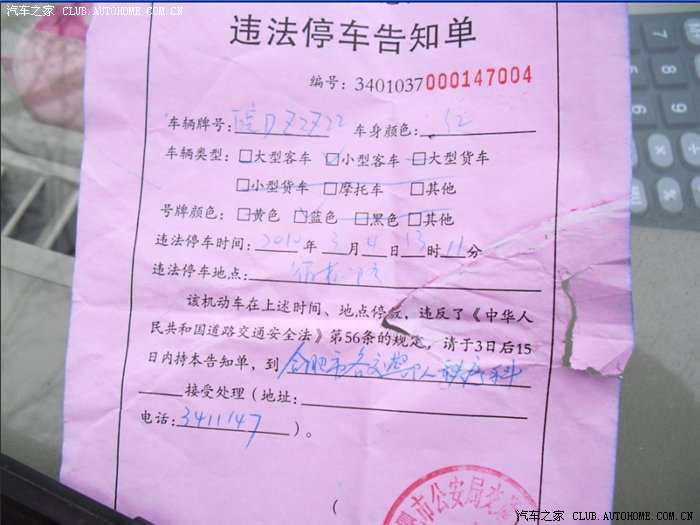 汽车之家 CLUB.AUTOHOME.COM.CN
违法停车告知单
编号: 3401037000147004
车辆牌号: 皖D Z2722 车身颜色: 红
车辆类型: □大型客车 ☑小型客车 □大型货车
□小型货车 □摩托车 □其他
号牌颜色: □黄色 ☑蓝色 □黑色 □其他
违法停车时间: 2010年3月4日13时11分
违法停车地点:
该机动车在上述时间、地点停放，违反了《中华人
民共和国道路交通安全法》第56条的规定，请于3日后15
日内持本告知单，到 合肥市各交警大队秩序科
接受处理（地址:
电话: 3411147 ）。
（
市公安局交
汽车之家 CLUB.AUTOHOME.COM.CN